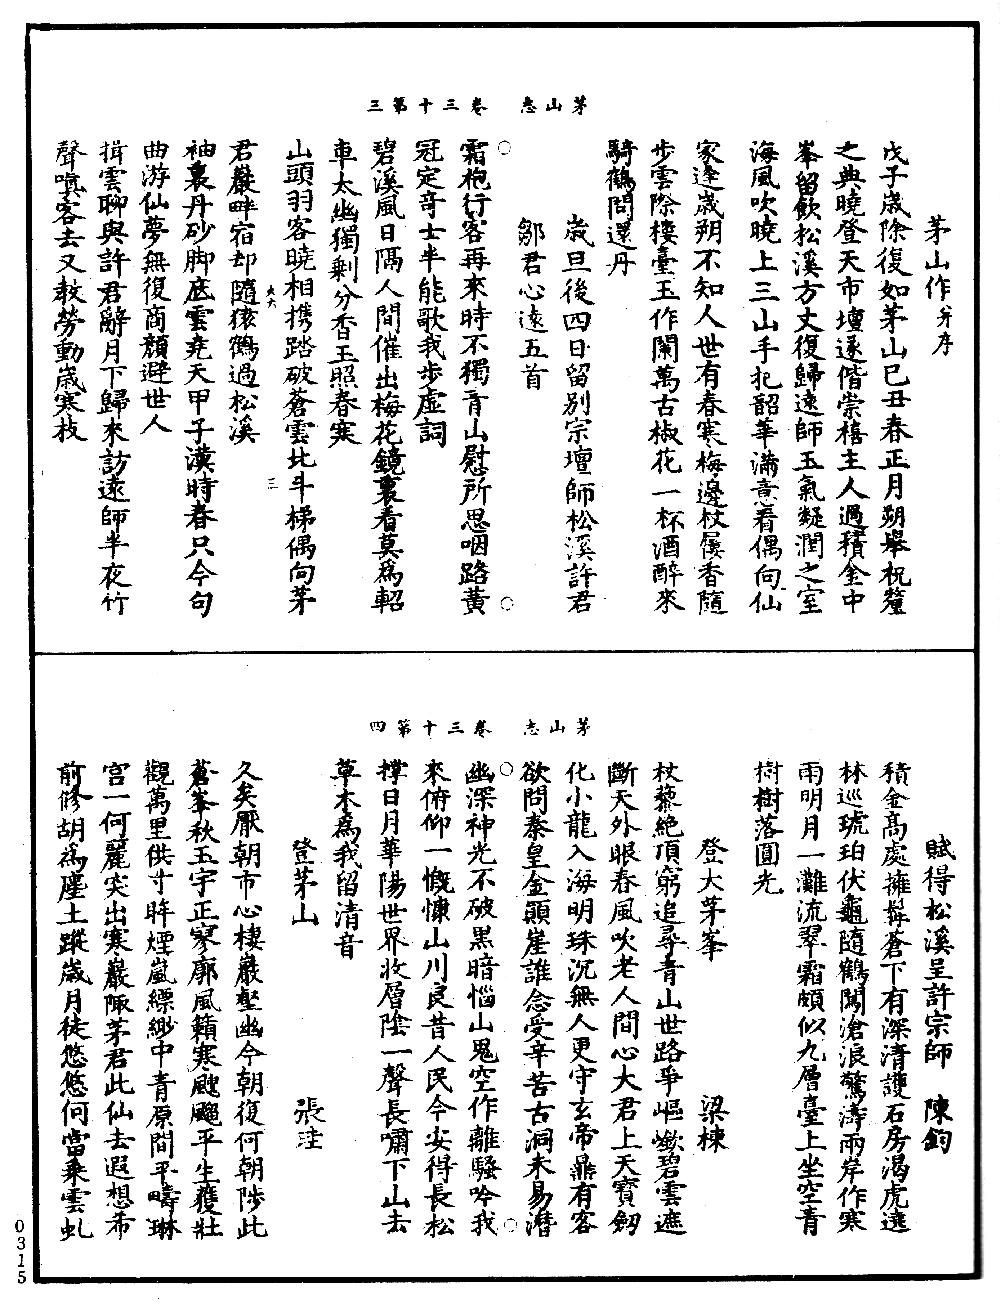 茅山志　卷三十第三
茅山作并序
戊子歲除復如茅山巳丑春正月朔舉祝釐
之典曉登天市壇遂偕崇禧主人過積金中
峯留飲松溪方丈復歸遠師玉氣凝潤之室
海風吹曉上三山手把韶華滿意看偶向仙
家逢歲朔不知人世有春寒梅邊杖屨香隨
步雲際樓臺玉作闌萬古椒花一杯酒醉來
騎鶴問還丹
歲旦後四日留別宗壇師松溪許君
鄒君心遠五首
霜枹行客再來時不獨青山慰所思咽路黃
冠定奇士半能歌我步虛詞
碧溪風日隔人間催出梅花鏡裏看莫為軺
車太幽獨剩分香玉照春寒
山頭羽客曉相携踏破蒼雲北斗梯偶向茅
君巖畔宿却隨猿鶴過松溪
袖裏丹砂脚底雲堯天甲子漢時春只今句
曲游仙夢無復商顏避世人
揖雲聊與許君辭月下歸來訪遠師半夜竹
聲嗔客去又敎勞動歲寒枝
茅山志　卷三十第四
賦得松溪呈許宗師　陳鈞
積金高處擁髯蒼下有深清護石房渴虎遶
林巡琥珀伏龜隨鶴闖滄浪驚濤兩岸作寒
雨明月一灘流翠霜頗似九層臺上坐空青
樹樹落圓光
登大茅峯　梁棟
杖藜絶頂窮追尋青山世路爭嶇嶔碧雲遮
斷天外眼春風吹老人間心大君上天寶劒
化小龍入海明珠沉無人更守玄帝鼎有客
欲問秦皇金顚崖誰念受辛苦古洞未易潛
幽深神光不破黑暗惱山鬼空作離騷吟我
來俯仰一慨慷山川良昔人民今安得長松
撑日月華陽世界收層陰一聲長嘯下山去
草木為我留清音
登茅山　張琺
久矣厭朝市心棲巖壑幽今朝復何朝陟此
蒼峯秋玉宇正寥廓風籟寒颼飀平生獲壯
觀萬里供寸眸煙嵐縹緲中青原間平疇琳
宫一何麗突出寒巖陬茅君此仙去遐想希
前修胡為塵土蹤歲月徒悠悠何當乘雲虬
0315